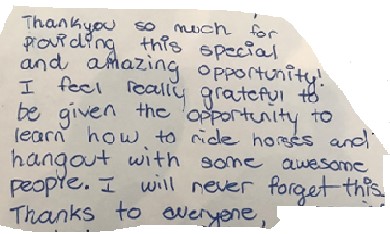 Thankyou so much for
providing this special
and amazing opportunity!
I feel really grateful to
be given the opportunity to
learn how to ride horses and
hangout with some awesome
people. I will never forget this.
Thanks to everyone,